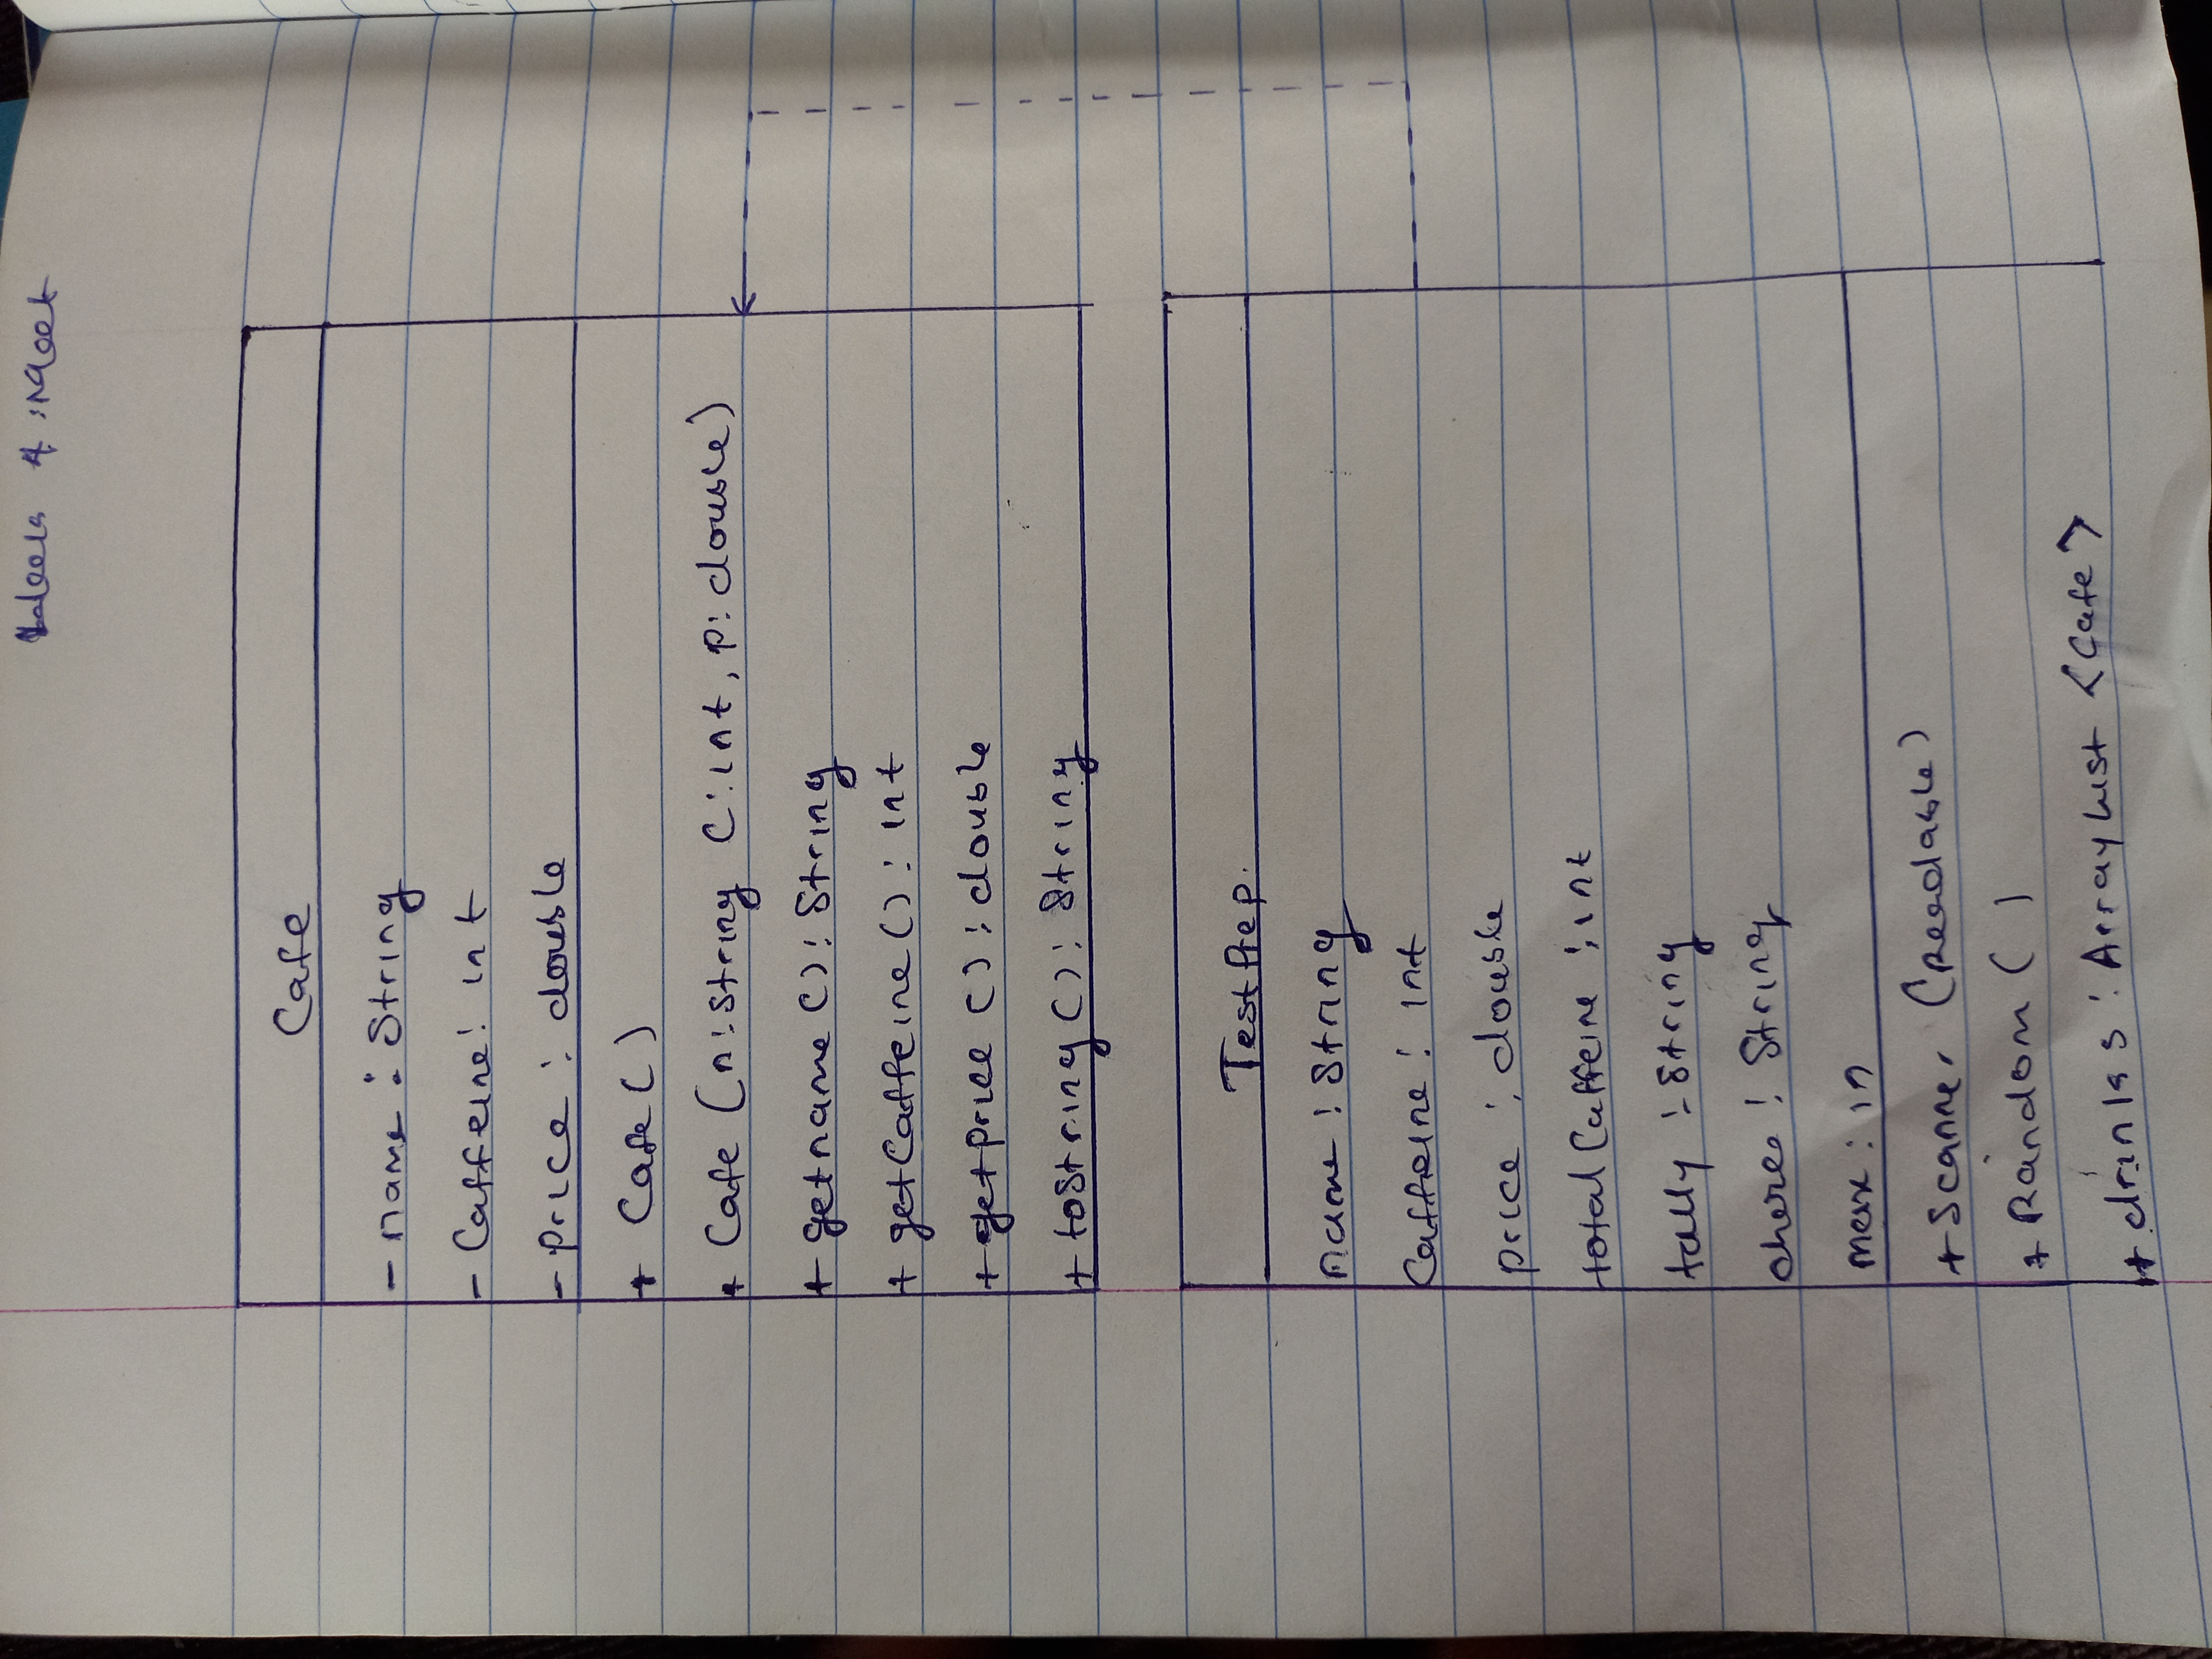 Week 4 :
Cafe
- name : String
- Caffeine : int
- price : double
+ Cafe ( )
+ Cafe (n : String C : int, p : double)
+ getname () : String
+ getCaffeine () : int
+ getprice () : double
+ toString () : String
TestPrep.
name : String
Caffeine : int
price : double
total Caffeine : int
tally : String
: String
max : in
+ Scanner (Readable)
+ Random ( )
+ drinks : ArrayList <Cafe>